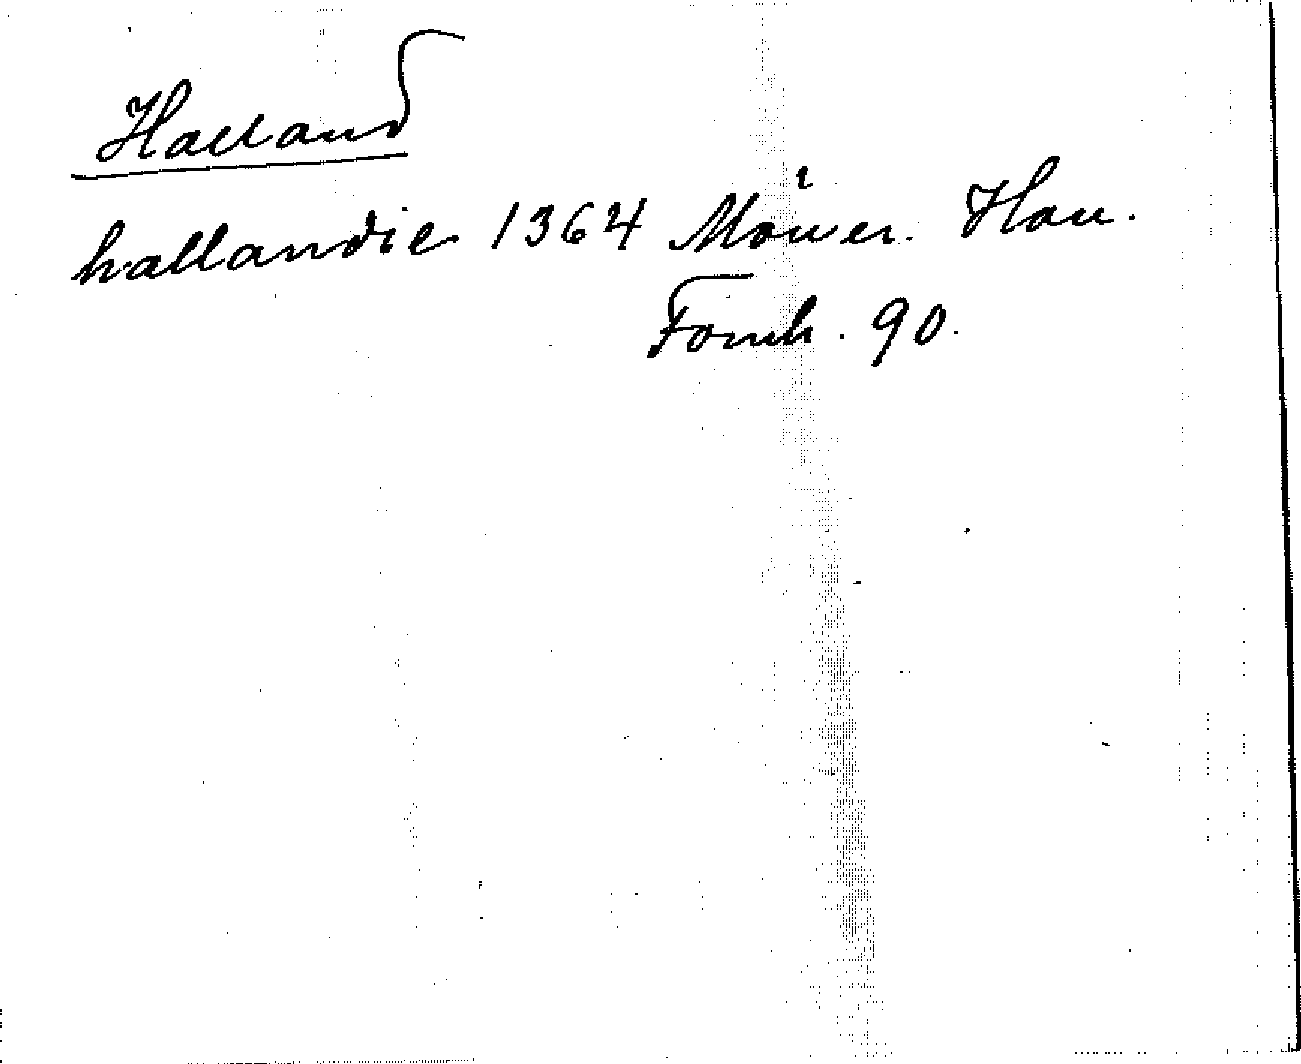 Halland
hallandie 1364 Möller. Hall.
Fornh. 90.